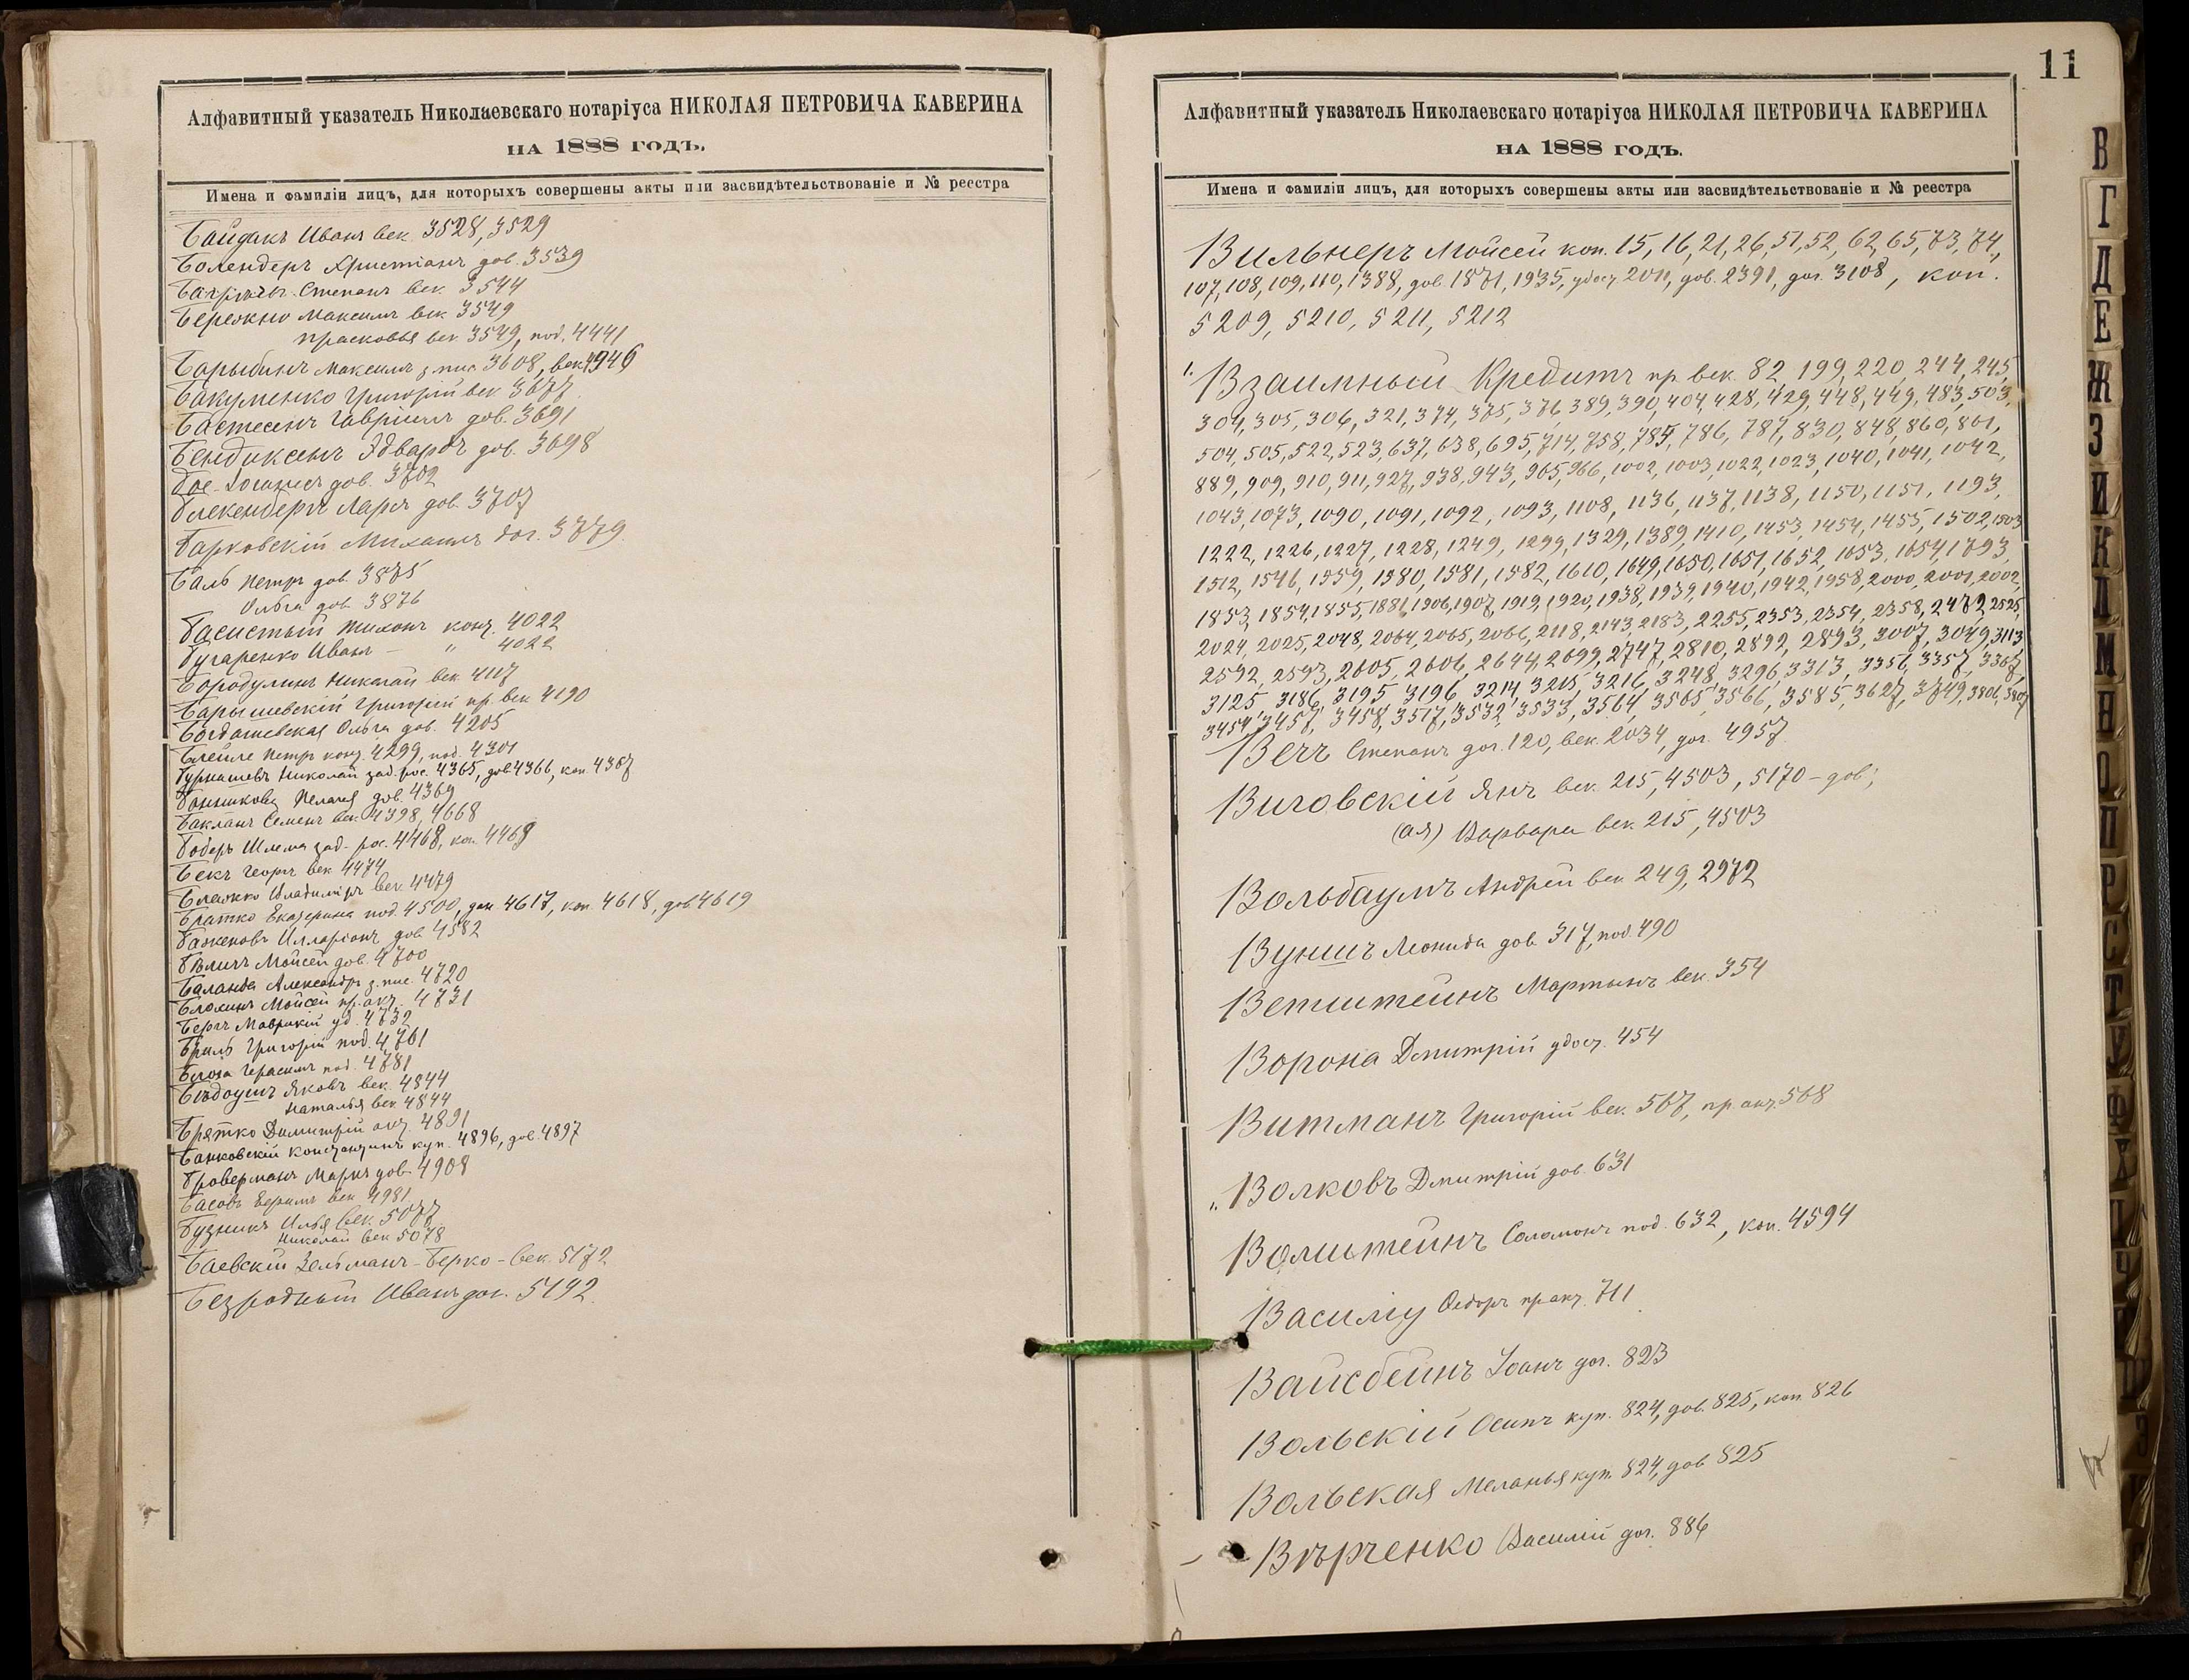 Алфавитный указатель Николаевскаго нотаріуса НИКОЛАЯ ПЕТРОВИЧА КАВЕРИНА
НА 1888 ГОДЪ.
Имена и фамиліи лицъ, для которыхъ совершены акты или засвидѣтельствованіе и № реестра
Байдакъ Иванъ век. 3528, 3529
Болендеръ Христіанъ дов. 3539
Степанъ век. 3544
Бережно Максимъ век. 3549
Прасковья век. 3549, под. 4441
Барыбинъ Максимъ з. пис. 3608, век. 4946
Бакуменко Григорій век. 3677
Бастесенъ Гавріилъ дов. 3691
Бендиксенъ Эдвардъ дов. 3698
Бое дов. 3702
Блекенбергъ Ларсъ дов. 3707
Барковскій Михаилъ дог. 3779
Баль Петръ дов. 3875
Ольга дов. 3876
Басистый Тихонъ конт. 4022
Бугаренко Иванъ — " 4022
Бородулинъ Николай век. 4117
Барышевскій Григорій пр. век. 4190
Богдашевская Ольга дов. 4205
Блейле Петръ конт. 4299, под. 4301
Бурнашевъ Николай зад. рос. 4365, дов. 4366, коп. 4367
Бонникова Пелагея дов. 4369
Бакланъ Семенъ век. 4398, 4668
Боберъ Шлема зад. рос. 4468, коп. 4469
Бекъ Георгъ век. 4474
Блажко Владиміръ век. 4479
Братко Екатерина под. 4500, дан. 4617, коп. 4618, дов. 4619
Баженовъ Илларіонъ дов. 4582
Бѣличъ Мойсей дов. 4700
Баланда Александръ з. пис. 4720
Блохинъ Мойсей пр. акт. 4731
Бергъ Маврикій уд. 4732
Бриль Григорій под. 4761
Герасимъ под. 4781
Бѣдоушъ Яковъ век. 4844
Наталья век. 4844
Братко Димитрій акт. 4891
Банковскій Константинъ куп. 4896, дов. 4897
Броверманъ Маркъ дов. 4908
Басовъ Ефимъ век. 4981
Бузникъ Илья век. 5077
Николай век. 5078
Баевскій Зельманъ-Берко - век. 5172
Безродный Иванъ дог. 5192
11
Алфавитный указатель Николаевскаго нотаріуса НИКОЛАЯ ПЕТРОВИЧА КАВЕРИНА
НА 1888 ГОДЪ.
Имена и фамиліи лицъ, для которыхъ совершены акты или засвидѣтельствованіе и № реестра
Вильнеръ Мойсей коп. 15, 16, 21, 26, 51, 52, 62, 65, 73, 74,
107, 108, 109, 110, 1388, дов. 1871, 1935, удост. 2011, дов. 2391, дог. 3108, коп.
5209, 5210, 5211, 5212
Взаимный Кредитъ пр. век. 82, 199, 220, 244, 245,
304, 305, 306, 321, 374, 375, 376, 389, 390, 404, 428, 429, 448, 449, 483, 503,
504, 505, 522, 523, 637, 638, 695, 714, 758, 785, 786, 787, 830, 848, 860, 861,
889, 909, 910, 911, 927, 938, 943, 965, 966, 1002, 1003, 1022, 1023, 1040, 1041, 1042,
1043, 1073, 1090, 1091, 1092, 1093, 1108, 1136, 1137, 1138, 1150, 1151, 1193,
1222, 1226, 1227, 1228, 1249, 1299, 1329, 1389, 1410, 1453, 1454, 1455, 1502, 1503
1512, 1546, 1559, 1580, 1581, 1582, 1610, 1649, 1650, 1651, 1652, 1653, 1654, 1793,
1853, 1854, 1855, 1881, 1906, 1907, 1919, 1920, 1938, 1939, 1940, 1942, 1958, 2000, 2001, 2002,
2024, 2025, 2048, 2064, 2065, 2066, 2118, 2143, 2183, 2255, 2353, 2354, 2358, 2472, 2525,
2592, 2593, 2605, 2606, 2644, 2699, 2747, 2810, 2892, 2893, 3007, 3049, 3113
3125, 3186, 3195, 3196, 3214, 3215, 3216, 3248, 3296, 3313, 3356, 3357, 3367,
3454, 3457, 3458, 3517, 3532, 3533, 3564, 3565, 3566, 3585, 3627, 3749, 3806, 3807
Вегъ Степанъ дог. 120, век. 2034, дог. 4957
Виговскій Янъ век. 215, 4503, 5170 - дов;
(ая) Варвара век. 215, 4503
Вольбаумъ Андрей век. 249, 2972
Вуншъ Леонида дов. 317, под. 490
Ветштейнъ Мартынъ век. 354
Ворона Дмитрій удост. 454
Витманъ Григорій век. 567, пр. акт. 568
Волковъ Дмитрій дов. 631
Волштейнъ Соломонъ под. 632, коп. 4594
Василіу Ѳедоръ пр акт. 711
Вайсбейнъ Іоанъ дог. 823
Вольскій Осипъ куп. 824, дов. 825, коп. 826
Вольская Меланья куп. 824, дов. 825
Вѣрченко Василій дог. 886
В
Г
Д
Е
Ж
З
И
К
Л
М
Н
О
П
Р
С
Т
У
Ф
Х
Ц
Ч